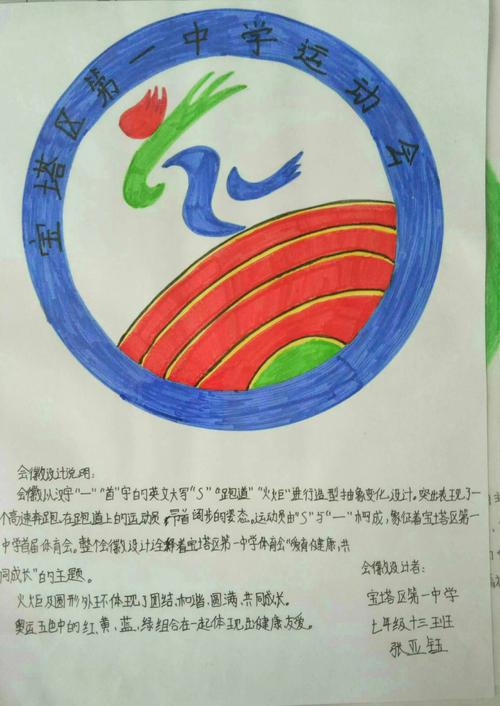 宝塔区第一中学运动会
会徽设计说明:
会徽从汉字“一”“首”字的英文大写“S”“跑道”“火炬”进行造型抽象变化设计。突出表现了一
个高速奔跑在跑道上的运动员,昂首阔步的姿态。运动员由“S”与“一”构成,象征着宝塔区第一
中学首届体育会。整个会徽设计诠释着宝塔区第一中学体育会“教育健康,共
同成长”的主题。
火炬及圆形外环体现了团结、和谐、圆满、共同成长。
奥运五色中的红、黄、蓝、绿组合在一起体现出健康友爱。
会徽设计者:
宝塔区第一中学
七年级十三班
张亚钰